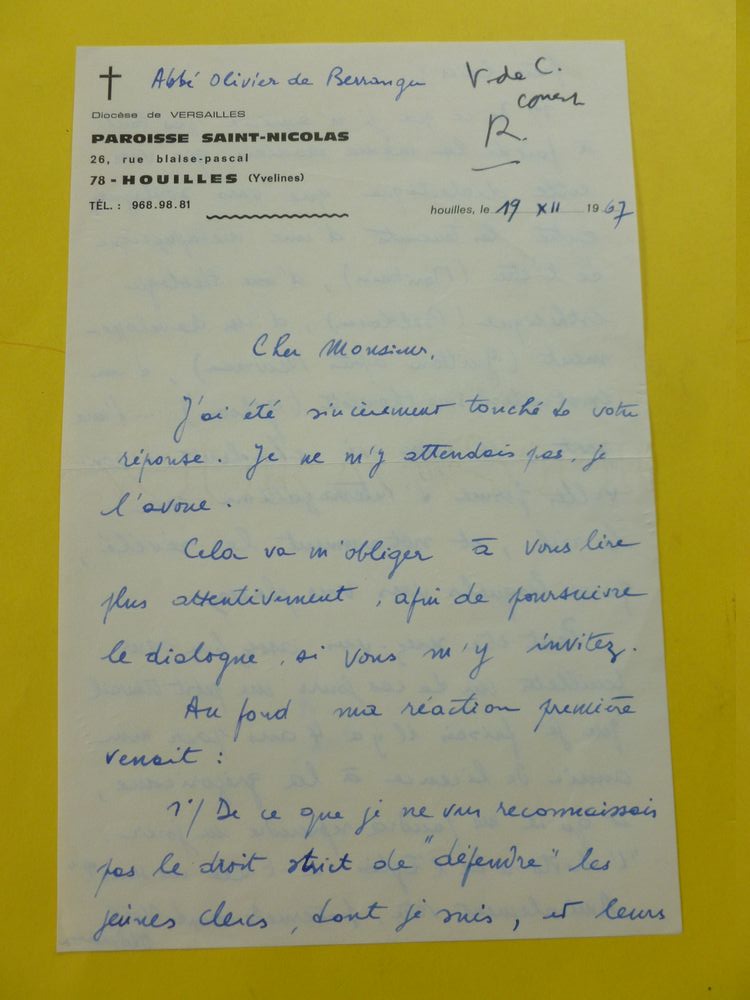 Abbé Olivier de Berranger
V. de C.
R.
Diocèse de VERSAILLES
PAROISSE SAINT-NICOLAS
26, rue blaise-pascal
78 - HOUILLES (Yvelines)
TÉL. : 968.98.81
houilles, le 19 XII 1967
Cher Monsieur,
J'ai été sincèrement touché de votre
réponse. Je ne m'y attendais pas, je
l'avoue.
Cela va m'obliger à vous lire
plus attentivement, afin de poursuivre
le dialogue, si vous m'y invitez.
Au fond ma réaction première
venait :
1°/ De ce que je ne vous reconnaissais
pas le droit strict de "défendre" les
jeunes clercs, dont je suis, et leurs